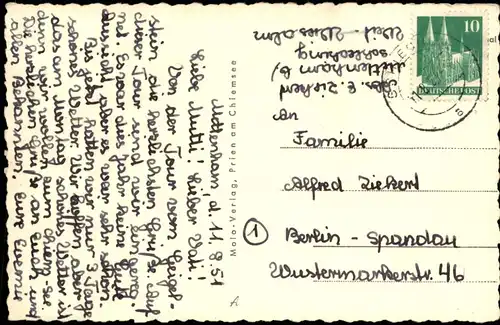 Mettenham, d. 11.9.51
Liebe Mutti! Lieber Vati!
Von der Tour vom Geigel-
stein die herzlichsten Grüße. Auf
dieser Tour sind wir ein
Es war dies Jahr keine gute
Aussicht, aber es war sehr schön.
Bis jetzt hatten wir nur 3 Tage
schönes Wetter. Wir hoffen aber
das am Montag schönes Wetter ist
denn wir wollen zum Chiem See.
Die herzlichsten Grüße an Euch und
allen Bekannten. Eure
Molo-Verlag, Prien am Chiemsee
A
Abs. E. Ziekert
Mettenham b/
Schleching
10
DEUTSCHE POST
An
Familie
Alfred Ziekert
1
Berlin - Spandau
Wustermarkerstr. 46